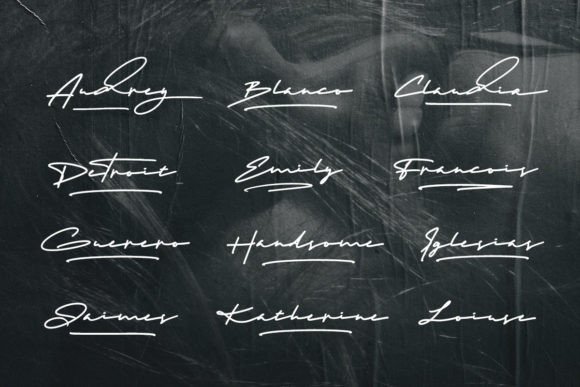 Audrey Blanco Claudia
Detroit Emily Francois
Guerero Handsome Iglesias
Jaimes Katherine Loiuse